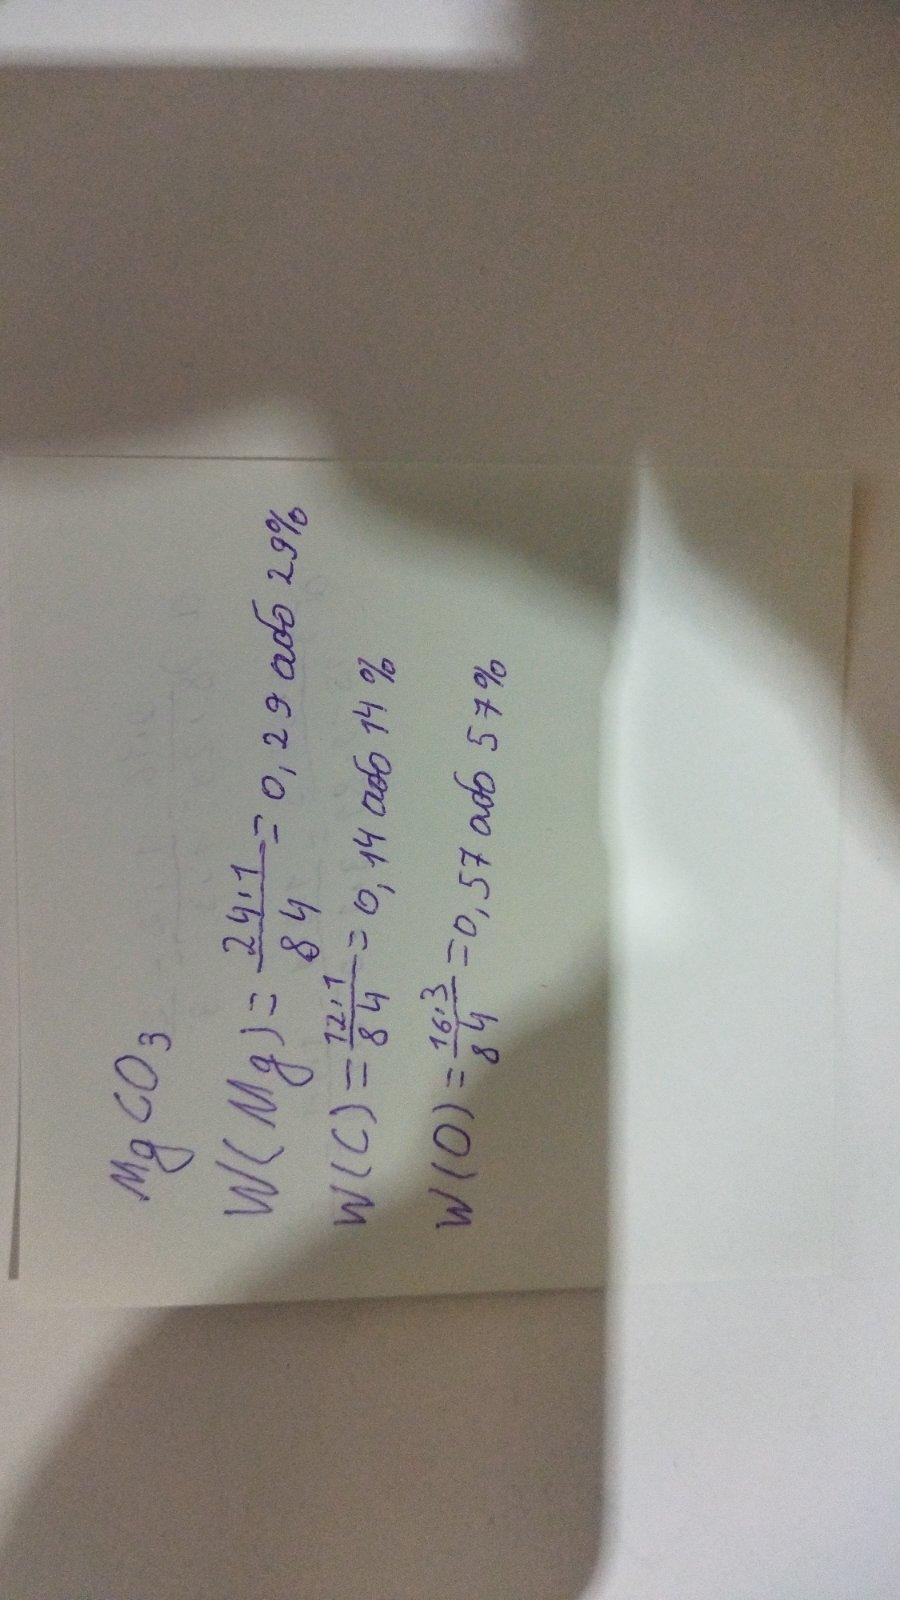 MgCO3
W(Mg) = 24·1/84 = 0,29 або 29%
W(C) = 12·1/84 = 0,14 або 14%
W(O) = 16·3/84 = 0,57 або 57%